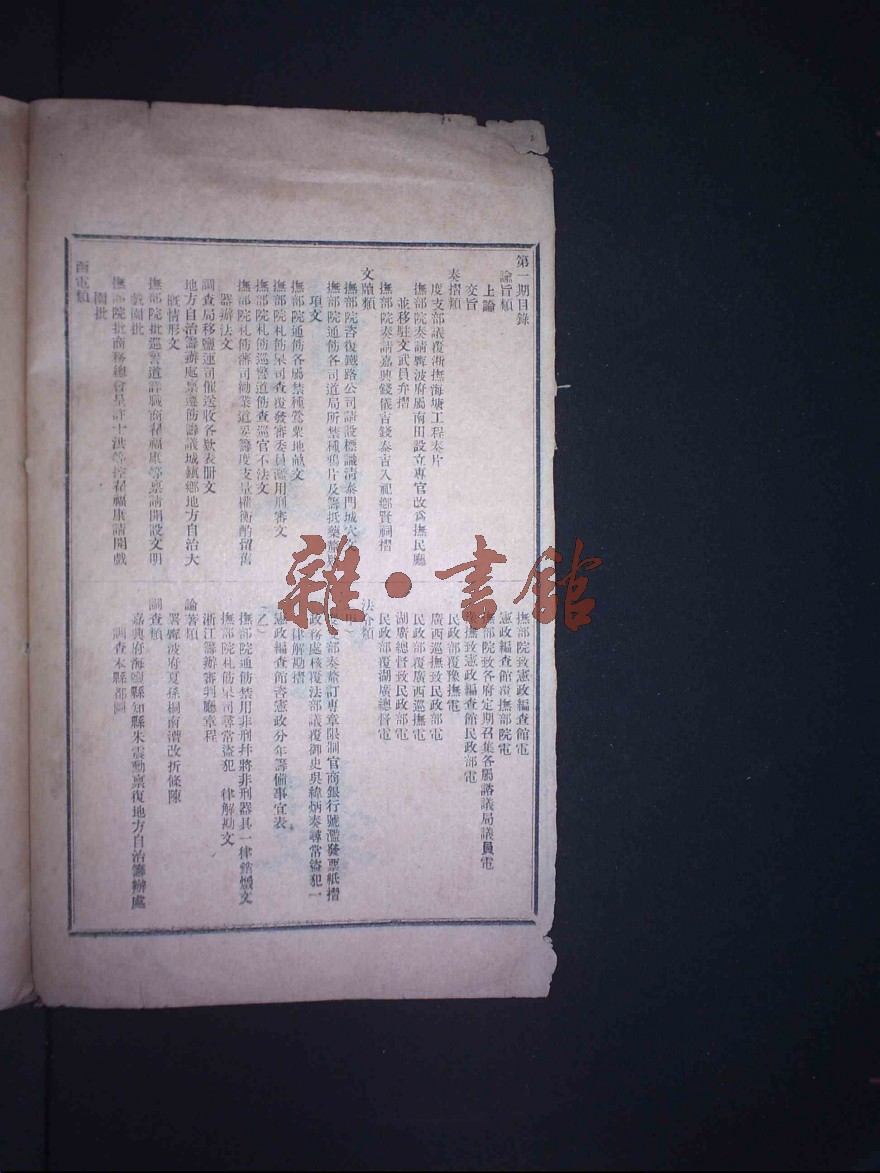 第一期目錄
諭旨類
上諭
交旨
奏摺類
度支部議覆浙撫海塘工程奏片
撫部院奏請寧波府屬南田設立專官改爲撫民廳
並移駐文武員弁摺
撫部院奏請嘉興錢儀吉錢泰吉入祀鄉賢祠摺
文牘類
撫部院咨復鐵路公司請設標識清泰門城穴文
撫部院通飭各司道局所禁種鴉片及籌抵藥
項文
撫部院通飭各屬禁種鶯粟地畝文
撫部院札飭臬司查復發審委員濫用刑審文
撫部院札飭巡警道飭查巡官不法文
撫部院札飭藩司勸業道妥籌度支量權衡酌留舊
器辦法文
調查局移鹽運司催送收各欵表册文
地方自治籌辦處禀遵飭籌議城鎭鄉地方自治大
概情形文
撫部院批巡警道詳職商春福康等禀請開設文明
戲園批
撫部院批商務總會呈計士洪等控春福康請開戲
園批
函電類
撫部院致憲政編查館電
憲政編查館覆撫部院電
撫部院致各府定期召集各屬諮議局議員電
撫致憲政編查館民政部電
民政部覆豫撫電
廣西巡撫致民政部電
民政部覆廣西巡撫電
湖廣總督致民政部電
民政部覆湖廣總督電
法令類
部奏釐訂專章限制官商銀行號濫發票紙摺
政務處核覆法部議覆御史吳緯炳奏尋常盜犯一
律解勘摺
憲政編查館咨憲政分年籌備事宜表
（乙）
撫部院通飭禁用非刑幷將非刑器具一律銷燬文
撫部院札飭臬司尋常盜犯一律解勘文
浙江籌辦審判廳章程
論著類
署寧波府夏孫桐南漕改折條陳
調查類
嘉興府海鹽縣知縣朱震勳禀復地方自治籌辦處
調查本縣都圖
雜·書館